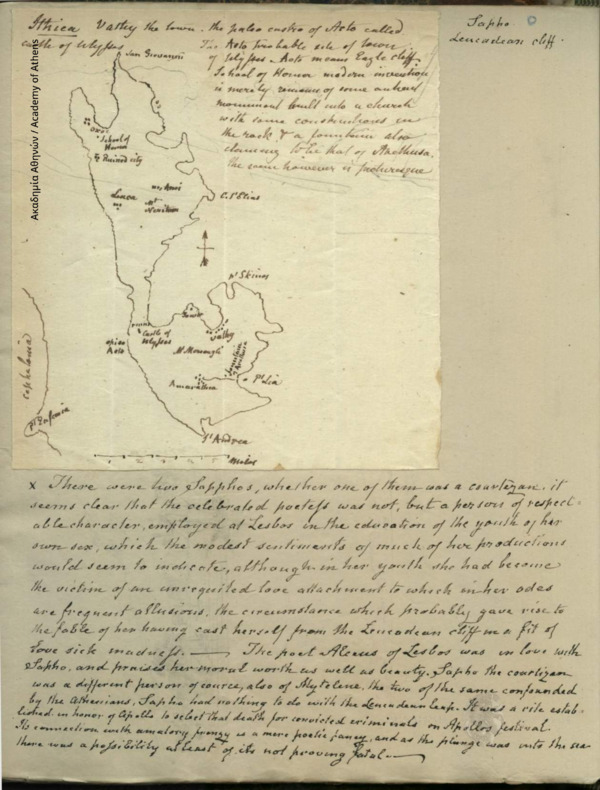 Ithica Vathy the town. the paleo castro of Aeto called
castle of Ulysses
The Aeto probable site of town
of Ulysses. Aeto means Eagle cliff.
School of Homer modern invention
is merely remains of some antient
monument built into a church
with some constructions in
the rock & a fountain also
claiming to be that of Arethusa.
the scene however is picturesque
Sapho
Leucadean cliff.
Ακαδημία Αθηνών / Academy of Athens
San Giovanni
School of
Homer
Ruined city
Leuca
Mt
C. St Elias
Pt Skinos
Castle of
Ulysses
Aeto
Vathy
Fountain
of Arethusa
Amarathia
Pt Lia
St Andrea
Cephalonia
Pt Eufemia
Miles
x There were two Saphos, whether one of them was a courtezan. it
seems clear that the celebrated poetess was not, but a person of respect-
able character, employed at Lesbos in the education of the youth of her
own sex, which the modest sentiments of much of her productions
would seem to indicate, although in her youth she had become
the victim of an unrequited love attachment to which in her odes
are frequent allusions, the circumstance which probably gave rise to
the fable of her having cast herself from the Leucadean cliff in a fit of
Love sick madness. — The poet Alceus of Lesbos was in love with
Sapho, and praises her moral worth as well as beauty. Sapho the courtizan
was a different person of cource, also of Mytelene, the two of the same confounded
by the Athenians, Sapho had nothing to do with the Leucadean leap. It was a rite estab-
lished in honor of Apollo to select that death for convicted criminals on Apollos festival.
Its connection with amatory frenzy is a mere poetic fancy, and as the plunge was into the sea
there was a possibility at least of its not proving fatal. —